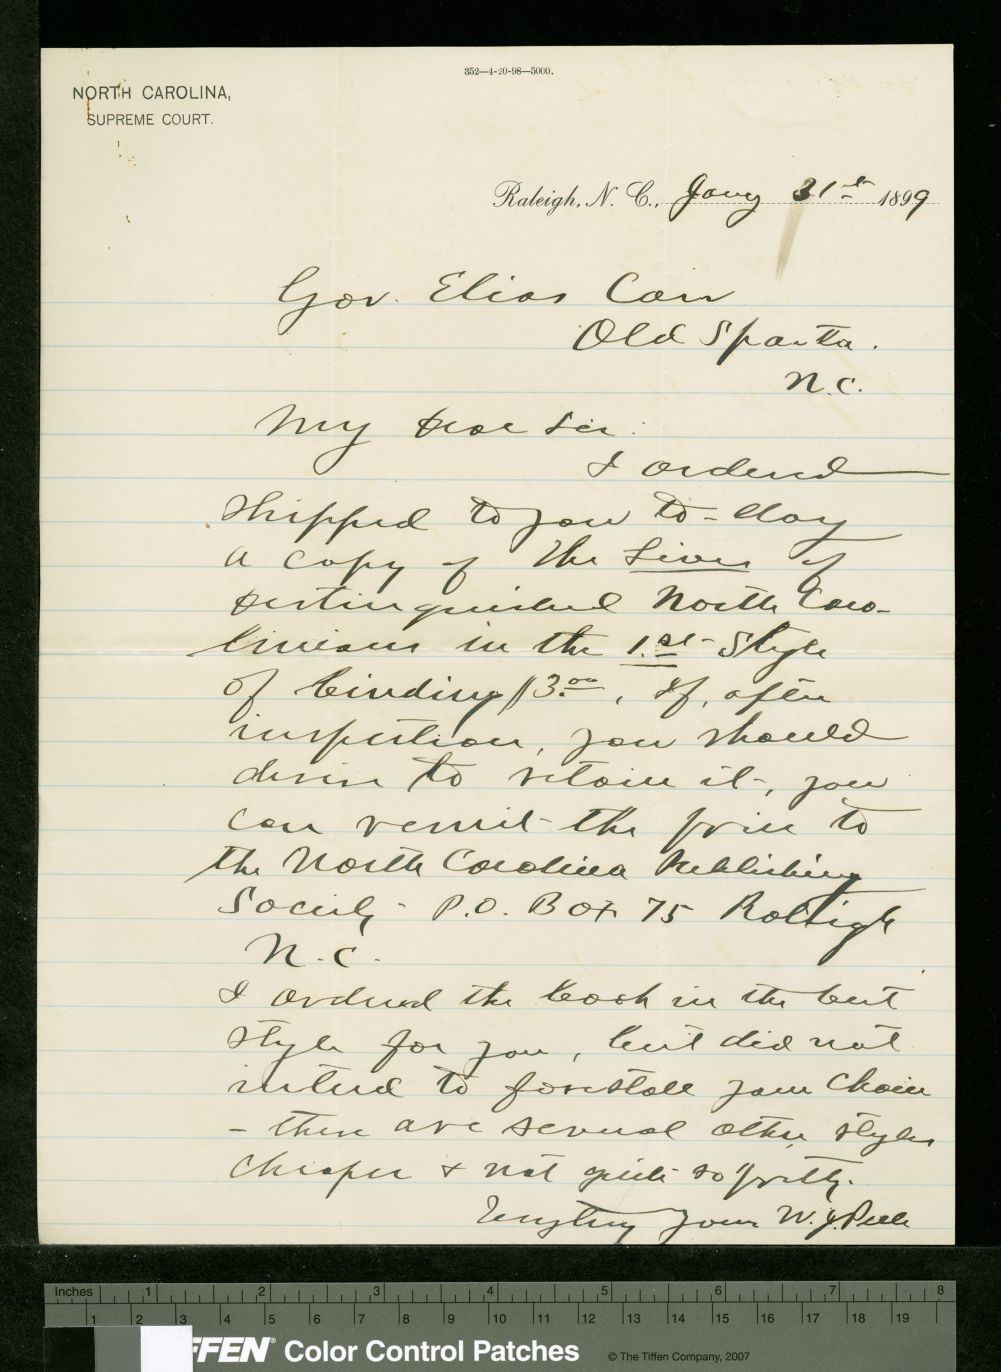 352—4-20-98—5000.
NORTH CAROLINA,
SUPREME COURT.
Raleigh, N. C., Jany 31st 1899
Gov. Elias Carr
Old Sparta.
N.C.
My Dear Sir:
I ordered
shipped to you to-day
a copy of the Lives of
Distinguished North Caro-
linians in the 1st Style
of binding $3.00, If, after
inspection, you should
desire to retain it, you
can remit the price to
the North Carolina Publishing
Society - P.O. Box 75 Raleigh
N.C.
I ordered the book in the best
style for you, but did not
intend to forestall your choice
- there are several other styles
cheaper & not quite so pretty.
Very truly yours W. J. Peele
Inches 1 2 3 4 5 6 7 8
1 2 3 4 5 6 7 8 9 10 11 12 13 14 15 16 17 18 19
FFEN® Color Control Patches © The Tiffen Company, 2007